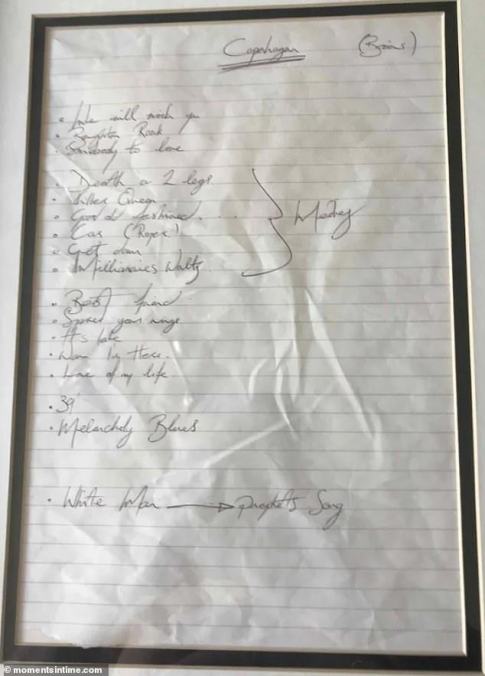 Copenhagen (Brians)
We will rock you
Brighton Rock
Somebody to love
Death on 2 legs
Killer Queen
Good old fashioned
Car (Roger)
Get down
Millionaires Waltz
Medley
Best friend
Spread your wings
It's late
Now I'm Here.
Love of my life
39
Melancholy Blues
White Man → prophets Song
© momentsintime.com